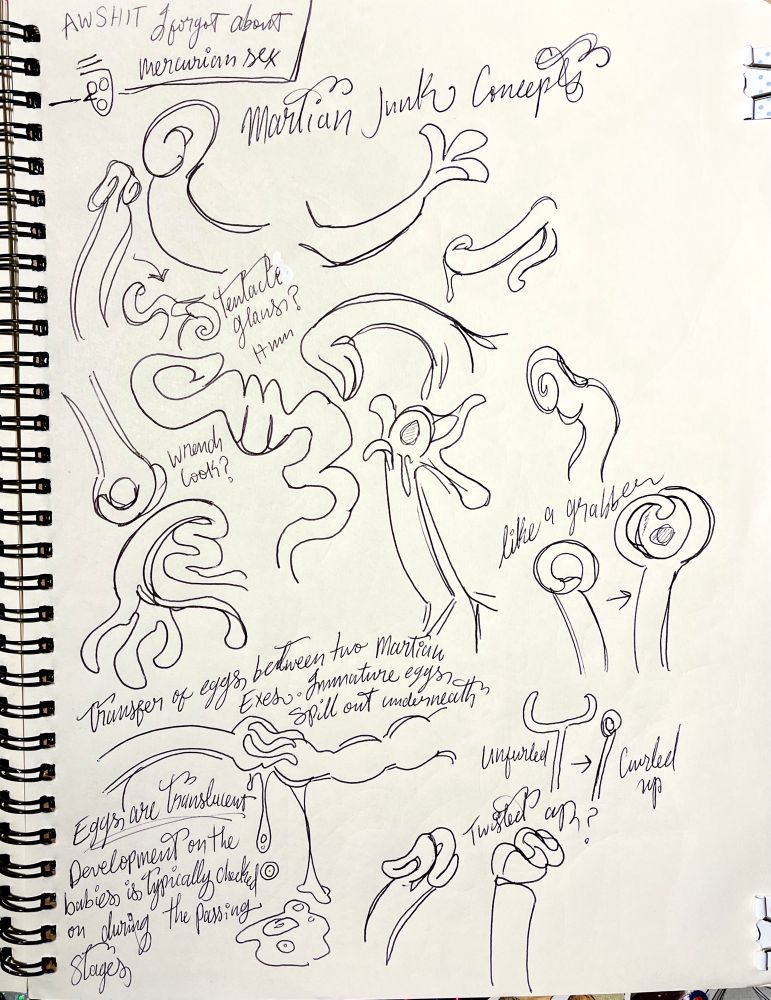 AWSHIT I forgot about
mercurian sex
Martian Junk Concepts
Tentacle
glans?
Hmm
Wrench
look?
like a grabber
Transfer of eggs between two Martian
Exes. Immature eggs
Spill out underneath
Unfurled
Curled
up
Eggs are translucent
Twisted up?
Development on the
babies is typically checked
on during the passing
stages